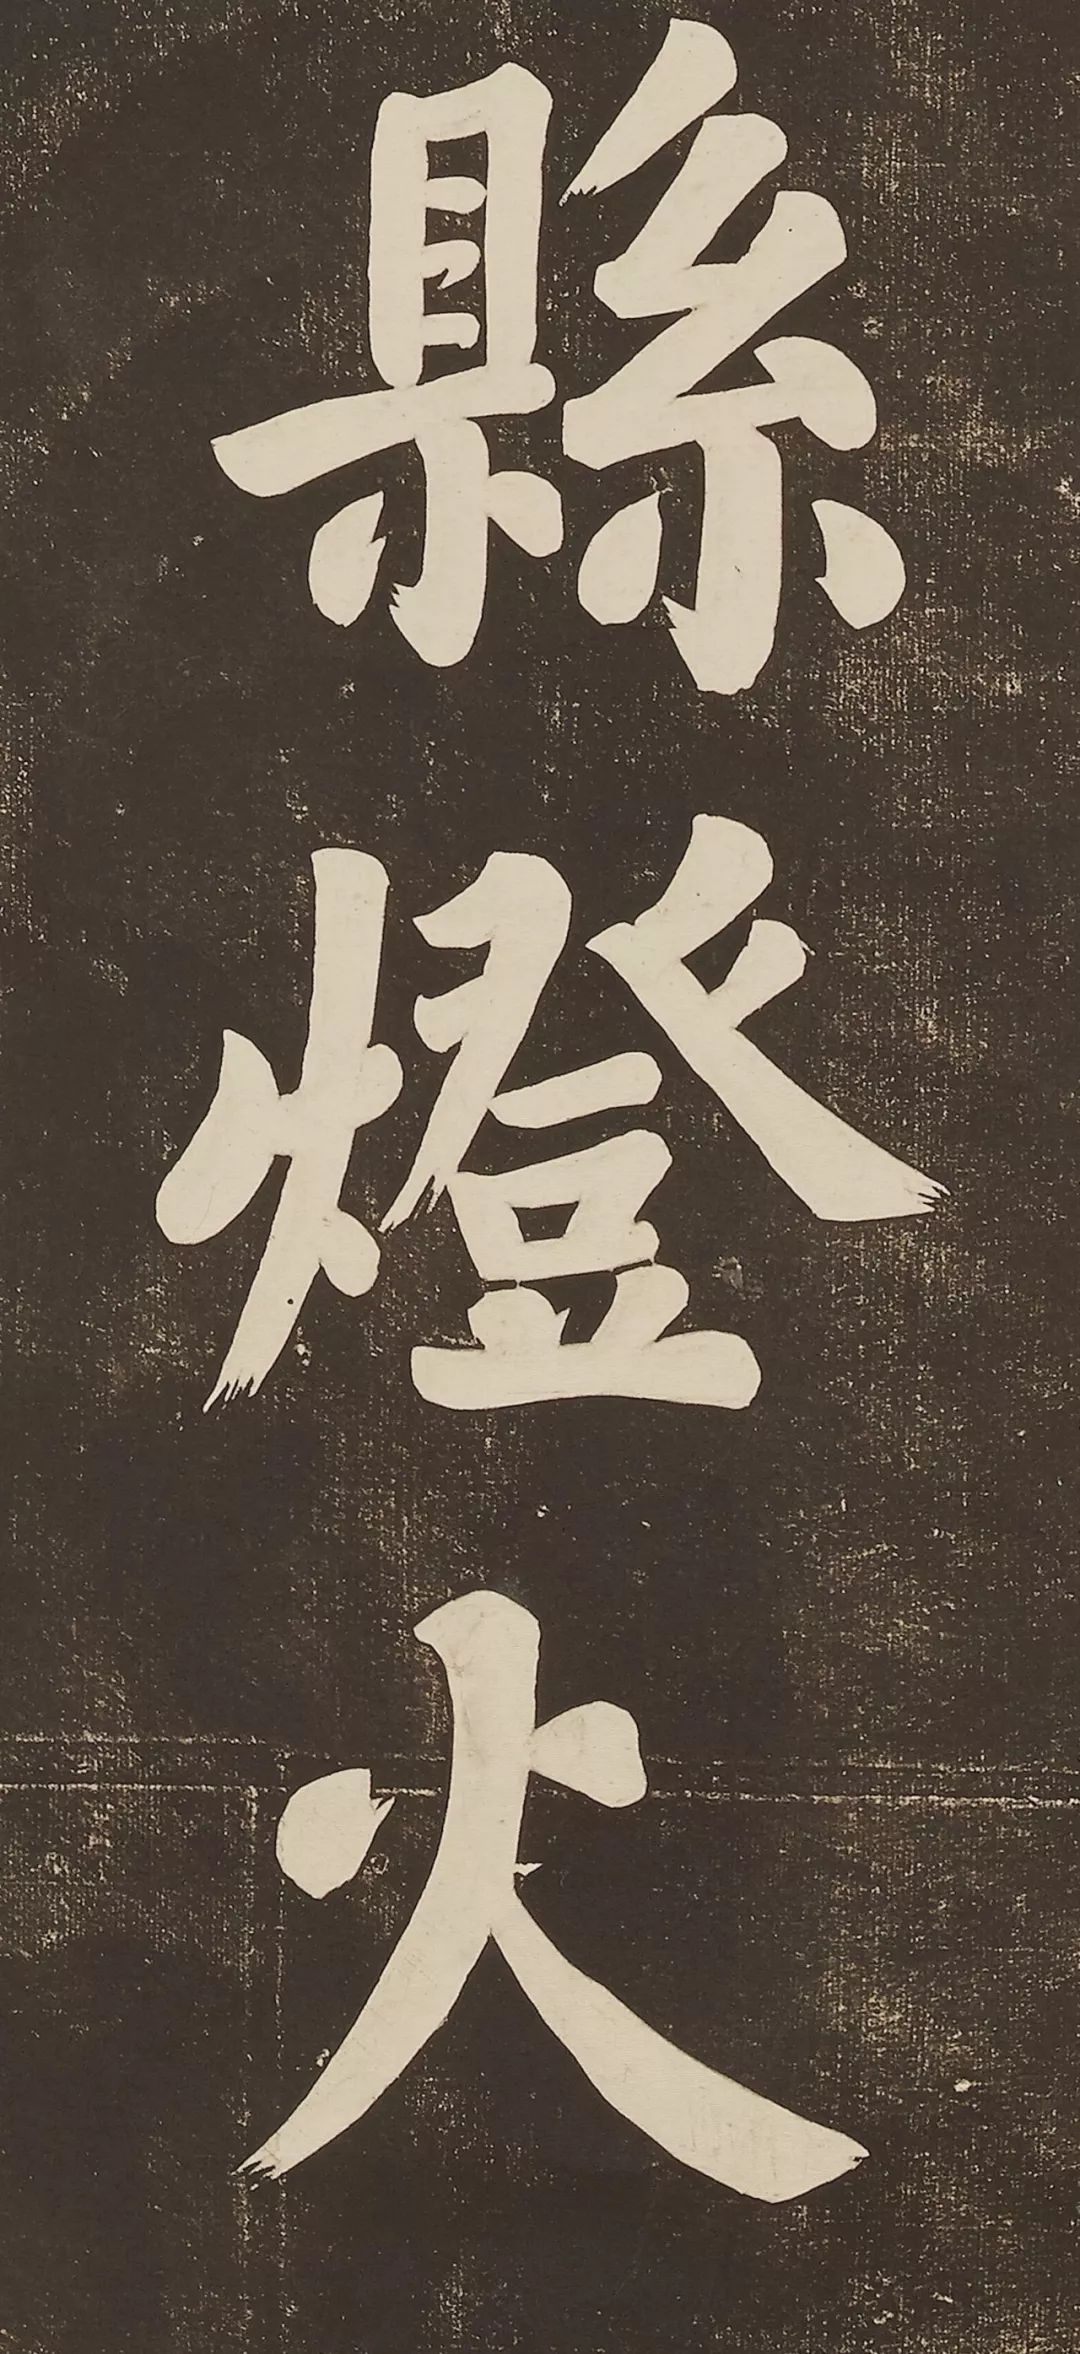 縣燈火